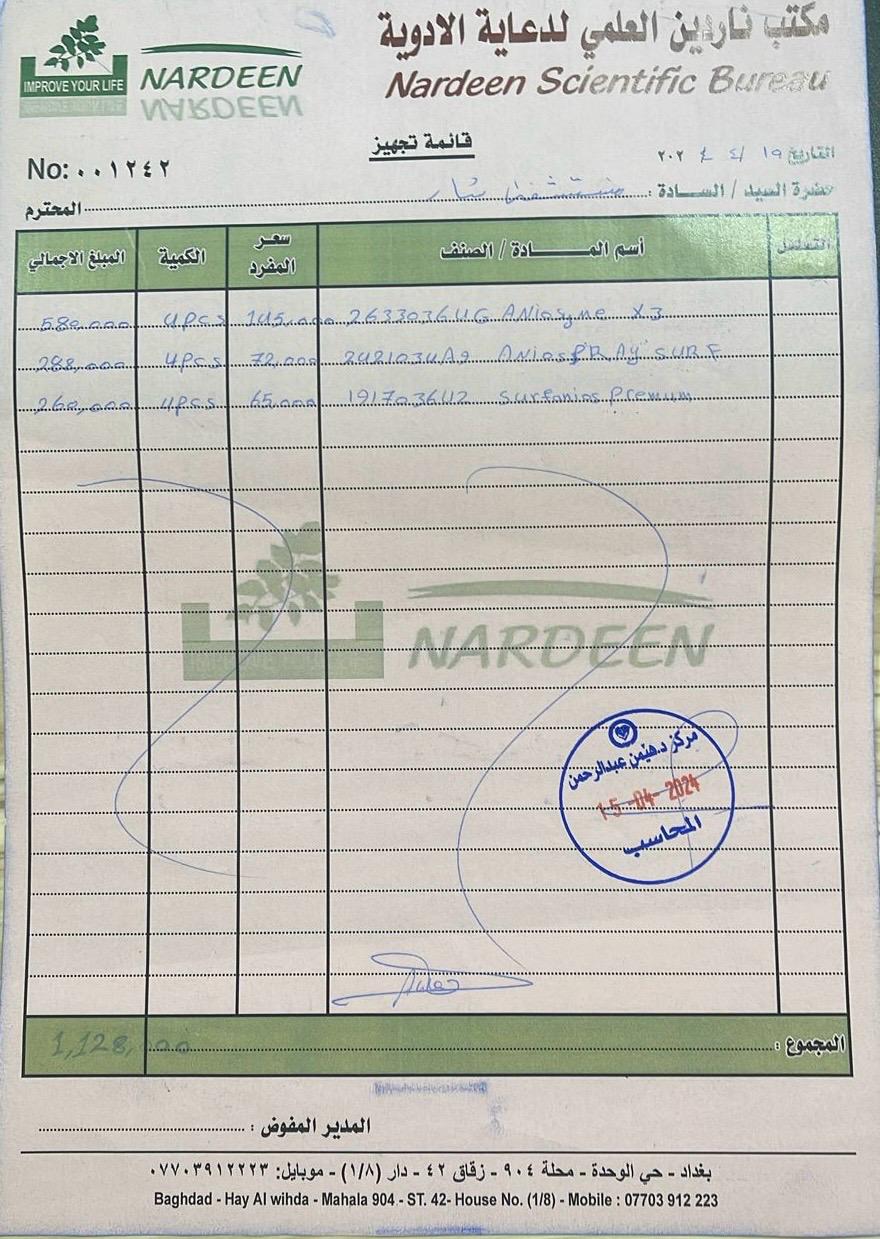 مكتب ناردين العلمي لدعاية الادوية
Nardeen Scientific Bureau
IMPROVE YOUR LIFE
NARDEEN
قائمة تجهيز
No: ٠٠١٢٤٢
التاريخ ١٩ / ٤ / ٢٠٢٤
حضرة السيد / السادة : مستشفى شار المحترم
التسلسل أسم المــــادة / الصنف سعر المفرد الكمية المبلغ الاجمالي
580,000 4pcs 145,000 2633036UG ANiosyme X3
288,000 4pcs 72,000 2421034A9 ANiosPRAy SURF
260,000 4pcs 65,000 1917036U2 Surfanios Premum
NARDEEN
مركز د.هيمن عبدالرحمن
15-04-2024
المحاسب
المجموع : 1,128,000
المدير المفوض :
بغداد - حي الوحدة - محلة ٩٠٤ - زقاق ٤٢ - دار (١/٨) - موبايل: ٠٧٧٠٣٩١٢٢٢٣
Baghdad - Hay Al wihda - Mahala 904 - ST. 42- House No. (1/8) - Mobile : 07703 912 223